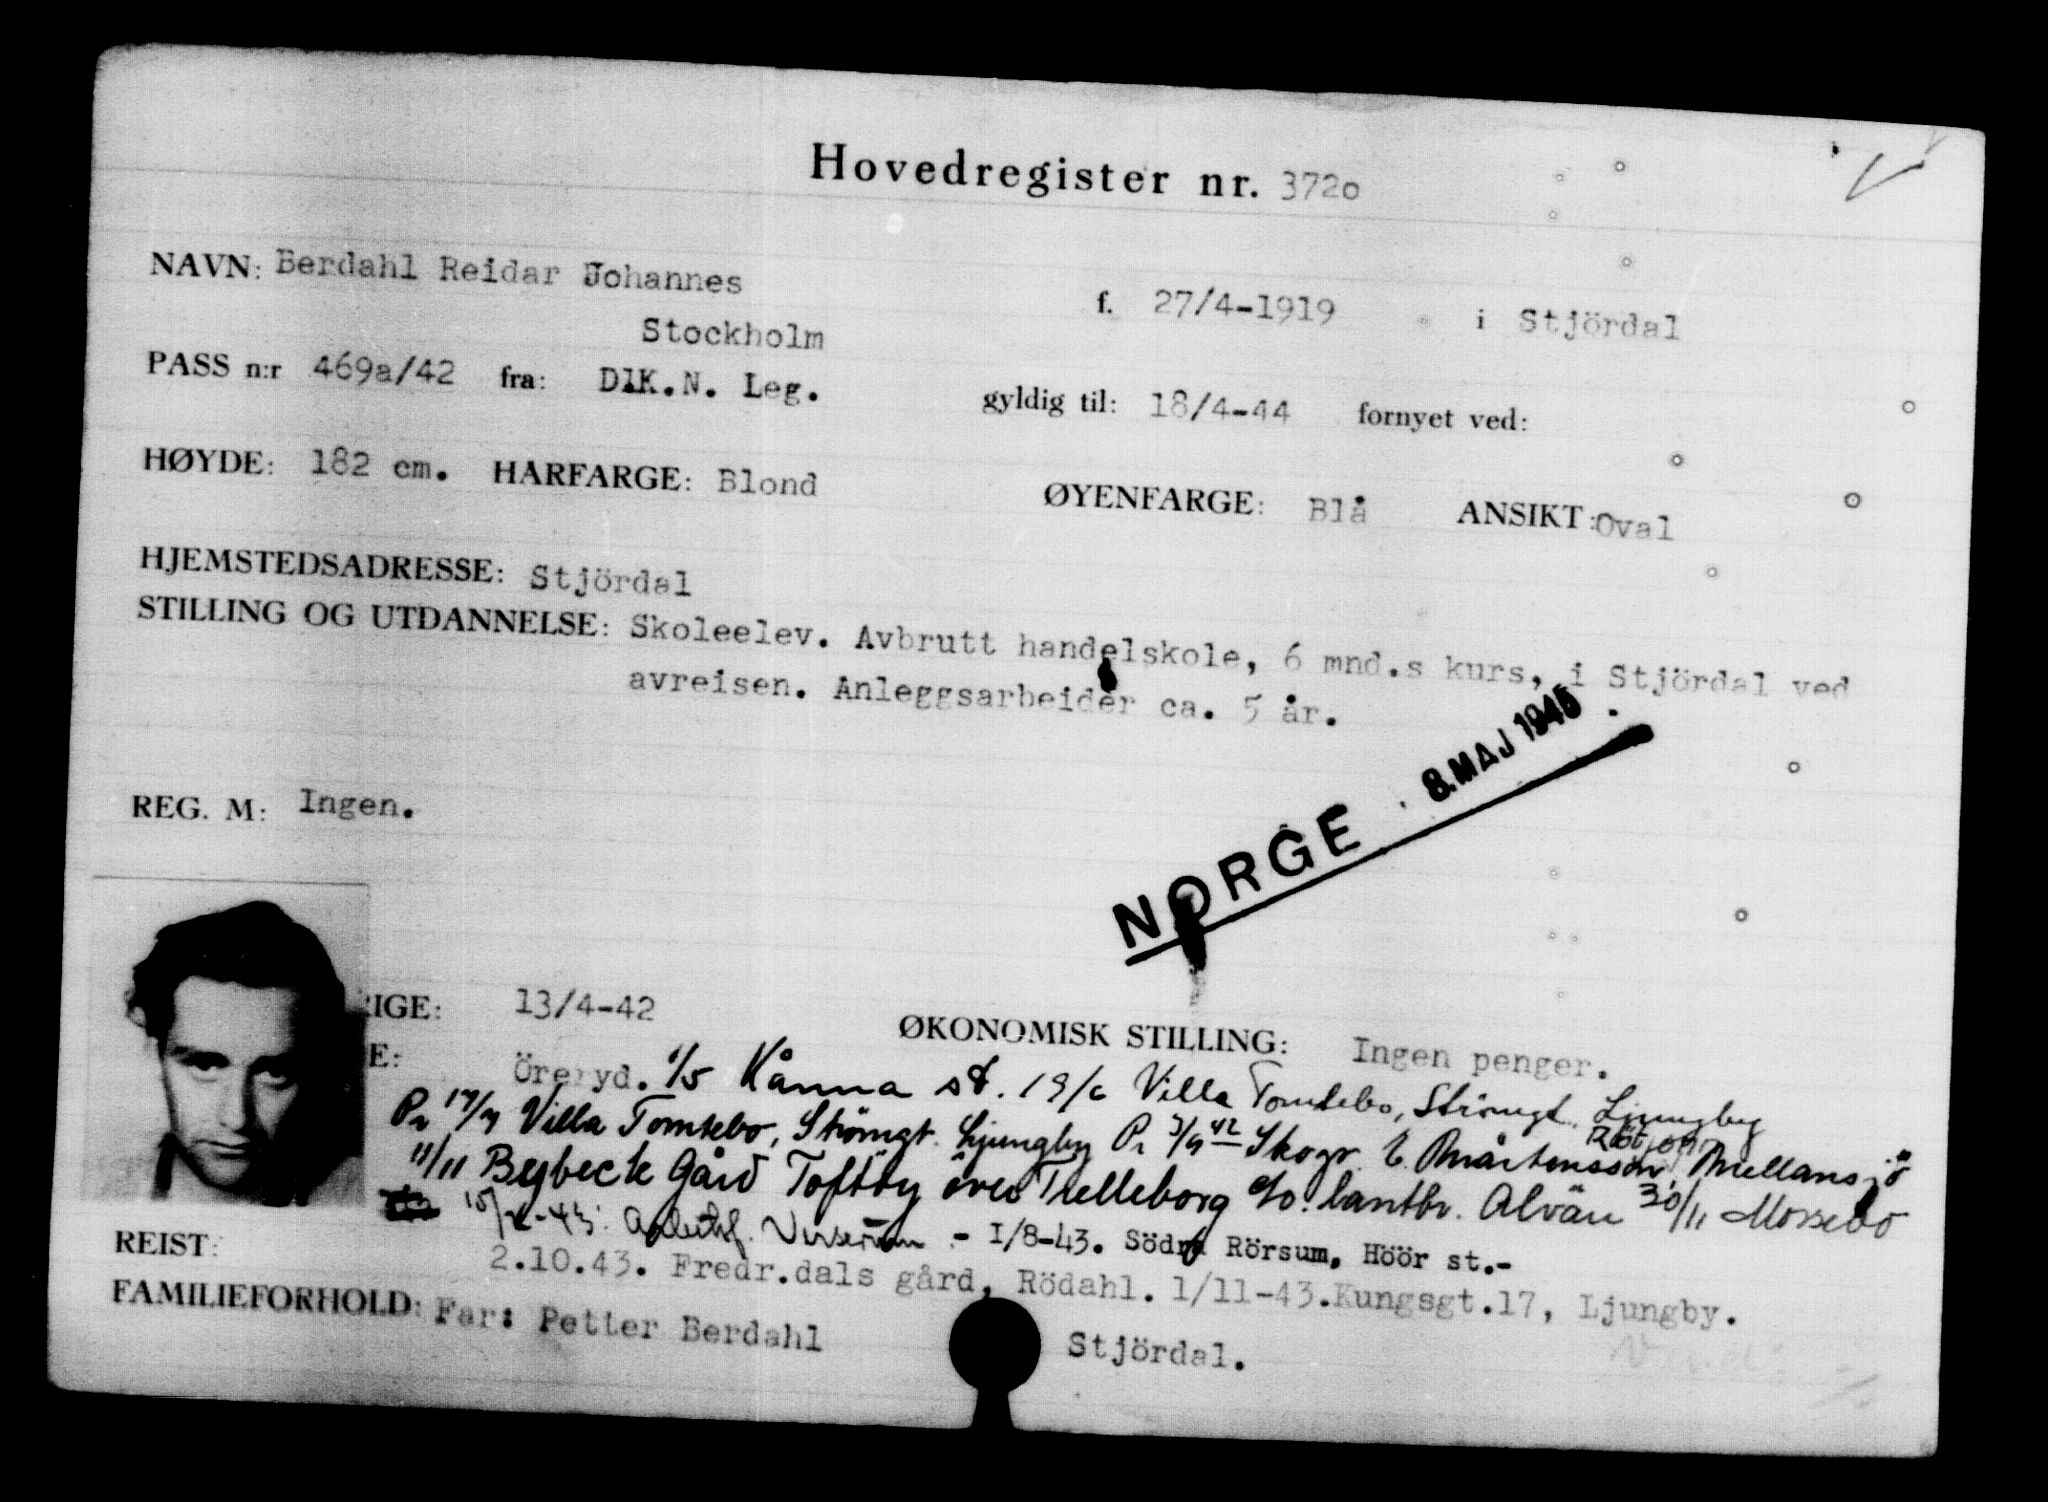 Hovedregister nr. 3720
NAVN: Berdahl Reidar Johannes f. 27/4-1919 i Stjördal
Stockholm
PASS n:r 469a/42 fra: D.K.N. Leg. gyldig til: 18/4-44 fornyet ved:
HØYDE: 182 cm. HARFARGE: Blond ØYENFARGE: Blå ANSIKT: Oval
HJEMSTEDSADRESSE: Stjördal
STILLING OG UTDANNELSE: Skoleelev. Avbrutt handelskole, 6 mnd.s kurs, i Stjördal ved
avreisen. Anleggsarbeider ca. 5 år.
NORGE 8. MAJ 1945
REG. M: Ingen.
RIGE: 13/4-42 ØKONOMISK STILLING: Ingen penger.
E: Öreryd. 1/5 Kånna st. 19/6 Villa Tomtebo, Strömgt. Ljungby
Pr 17/7 Villa Tomtebo, Strömgt. Ljungby Pr 3/9 42 Skogv. E. Mårtensson, Rötjorn Mellansjö
11/11 Bybeck Gård Toftby över Trelleborg c/o lantbr. Alvän 30/11 Mossebo
15/2-43: Virserum - 1/8-43. Södra Rörsum, Höör st.-
REIST: 2.10.43. Fredr.dals gård, Rödahl. 1/11-43. Kungsgt.17, Ljungby.
FAMILIEFORHOLD: Far: Petter Berdahl Stjördal.